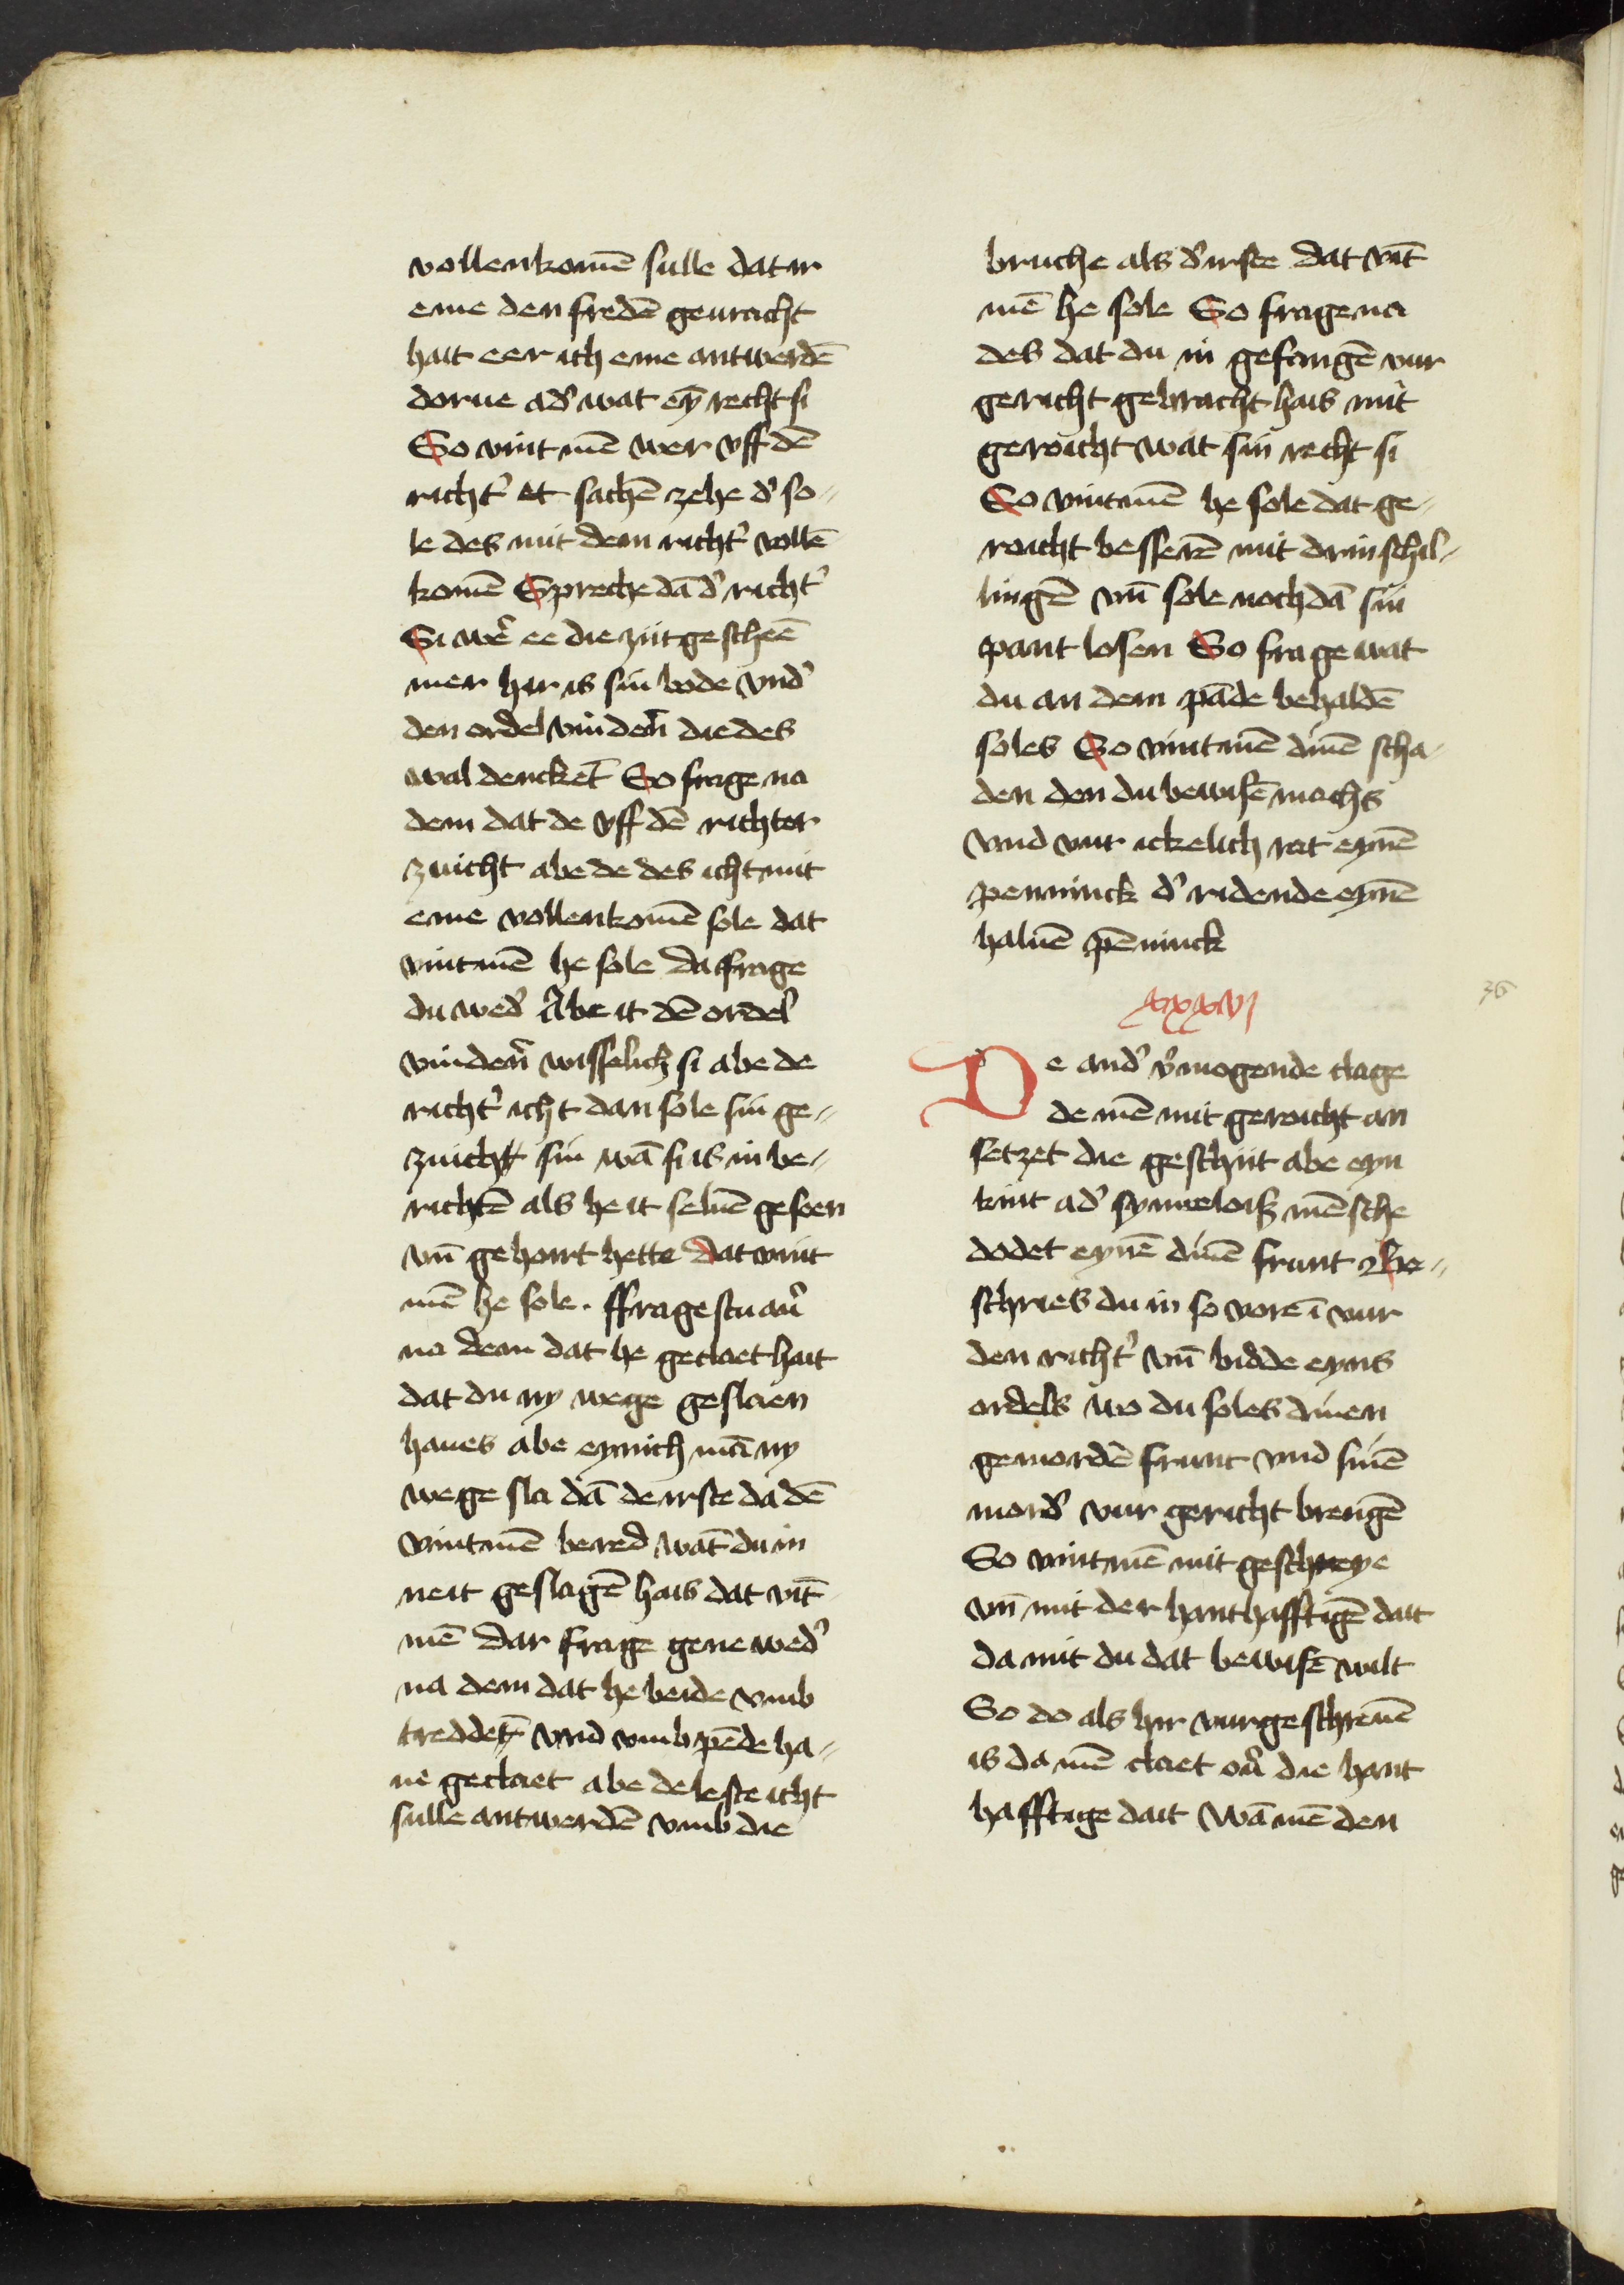 vollenkomē sulle dat ir
eme den fredē geuracht
hait eer ich eme antwerdē
dorue ad' wat eȳ recht si
So vint mē wer vff dē
richt' et sachē zehe d' so-
le des mit dem richt' vollē
komē Spreche dā d' richt'
Si we' ee die zijt gescheē
mer hir is sin bode vnd'
den ordel vinden' die des
wal dencket So frage na
dem dat de vff dē richter
zuicht abe de des icht mit
eme vollenkomē sole dat
vint mē he sole da frage
du wed' Abe it dē ordel'
vinden' wisselich si abe de
richt' icht dan sole sin ge-
zuicht sin wā si is in be-
richtē als he it seluē gesoen
vn̄ gehoirt hette dat vint
mē he sole. ffragestu au'
na dem dat he geclaet hait
dat du ny wege geslaen
haues abe eynich mā ny
wege sla dā de irste da dē
vint mē beaed wāt du in
neit geslagē hais dat vīt
mē Dar frage gene wed'
na dem dat he beide vmb
treddēt vnd vmb pēde ha-
ue geclaet abe de leste icht
sulle antwerdē vmb die
bruche als d' irste dat vīt
mē he sole So frage na
des dat du in gefangē vur
gericht gebracht hais mit
geroicht wat sin recht si
So vint mē he sole dat ge-
roicht besserē mit drin schil-
lingē vn̄ sole noch dā sin
pant losen So frage wat
du an dem pāde behaldē
soles So vint mē dinē scha-
den den du bewisē mochs
vnd vur ickelich rat eynē
penninck d' ridende eynē
haluē pēninck
xxxvi
36
De and' v'mogende clage
de mē mit geroicht an
setzet die geschiit abe eyn
kint ad' synneloiß mēsche
dodet eynē dinē frunt Be-
schries du in so vore ī vur
den richt' vn̄ bidde eyns
ordels wo du soles dinen
gemordē frunt vnd sinē
mord' vur gericht brengē
So vint mē mit geschreye
vn̄ mit der hanthafftigē dait
da mit du dat bewisē wilt
So do als hir vurgeschreuē
is da mē claet ou' die hant
hafftige dait Wā mē den